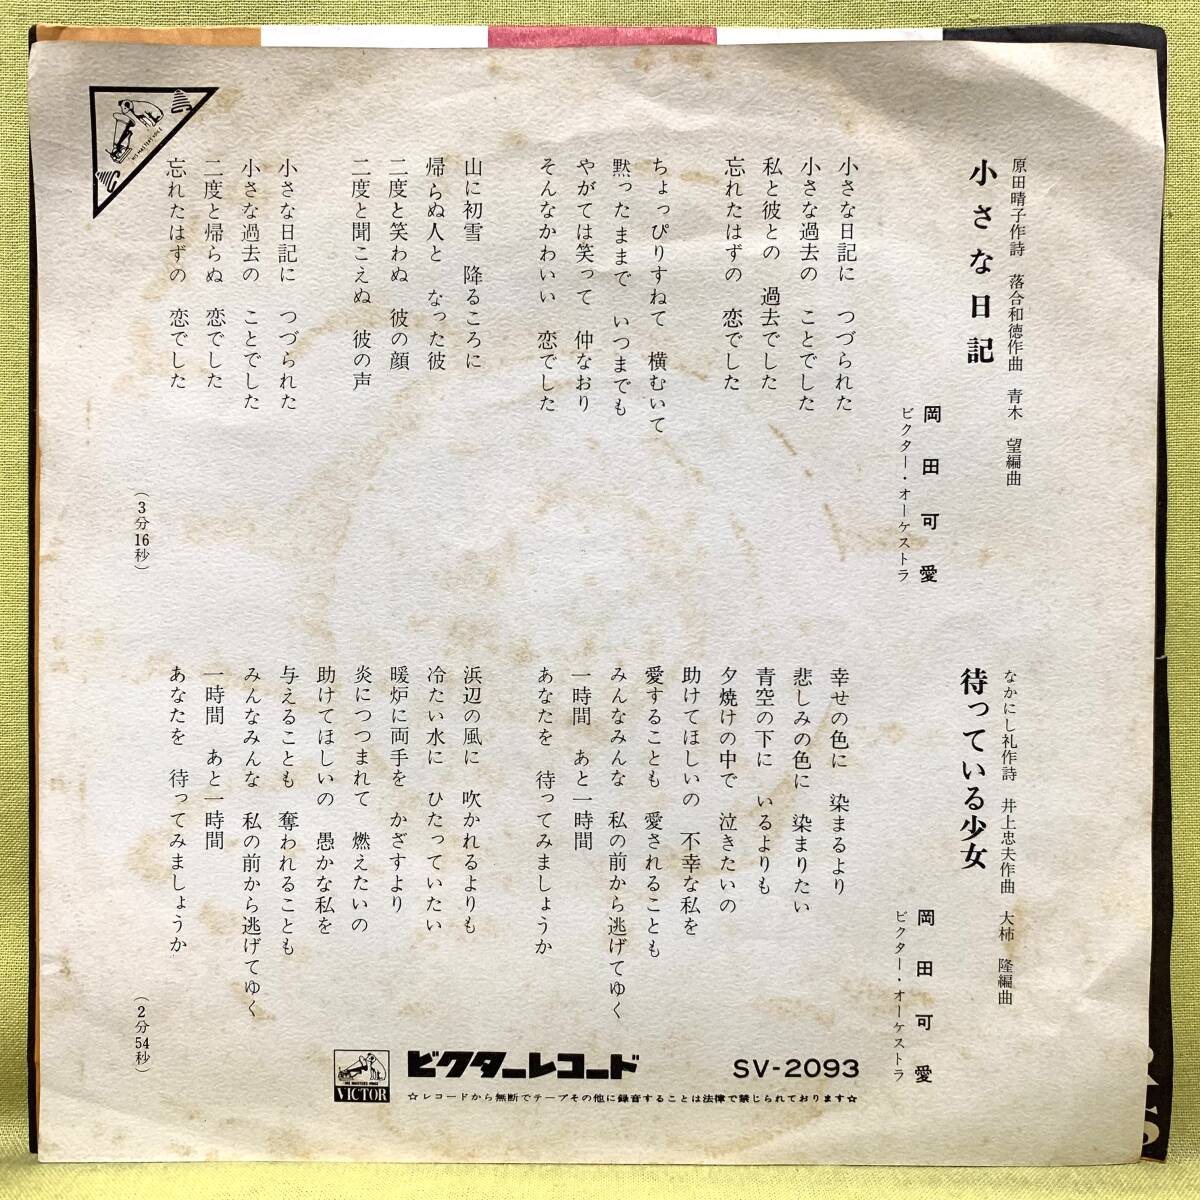 小さな日記
原田晴子作詩 落合和徳作曲 青木 望編曲
岡田可愛
ビクター・オーケストラ
小さな日記に つづられた
小さな過去の ことでした
私と彼との 過去でした
忘れたはずの 恋でした
ちょっぴりすねて 横むいて
黙ったままで いつまでも
やがては笑って 仲なおり
そんなかわいい 恋でした
山に初雪 降るころに
帰らぬ人と なった彼
二度と笑わぬ 彼の顔
二度と聞こえぬ 彼の声
小さな日記に つづられた
小さな過去の ことでした
二度と帰らぬ 恋でした
忘れたはずの 恋でした
(3分16秒)
待っている少女
なかにし礼作詩 井上忠夫作曲 大柿 隆編曲
岡田可愛
ビクター・オーケストラ
幸せの色に 染まるより
悲しみの色に 染まりたい
青空の下に いるよりも
夕焼けの中で 泣きたいの
助けてほしいの 不幸な私を
愛することも 愛されることも
みんなみんな 私の前から逃げてゆく
一時間 あと一時間
あなたを 待ってみましょうか
浜辺の風に 吹かれるよりも
冷たい水に ひたっていたい
暖炉に両手を かざすより
炎につつまれて 燃えたいの
助けてほしいの 愚かな私を
与えることも 奪われることも
みんなみんな 私の前から逃げてゆく
一時間 あと一時間
あなたを 待ってみましょうか
(2分54秒)
HIS MASTER'S VOICE
VICTOR
ビクターレコード SV-2093
☆レコードから無断でテープその他に録音することは法律で禁じられております☆